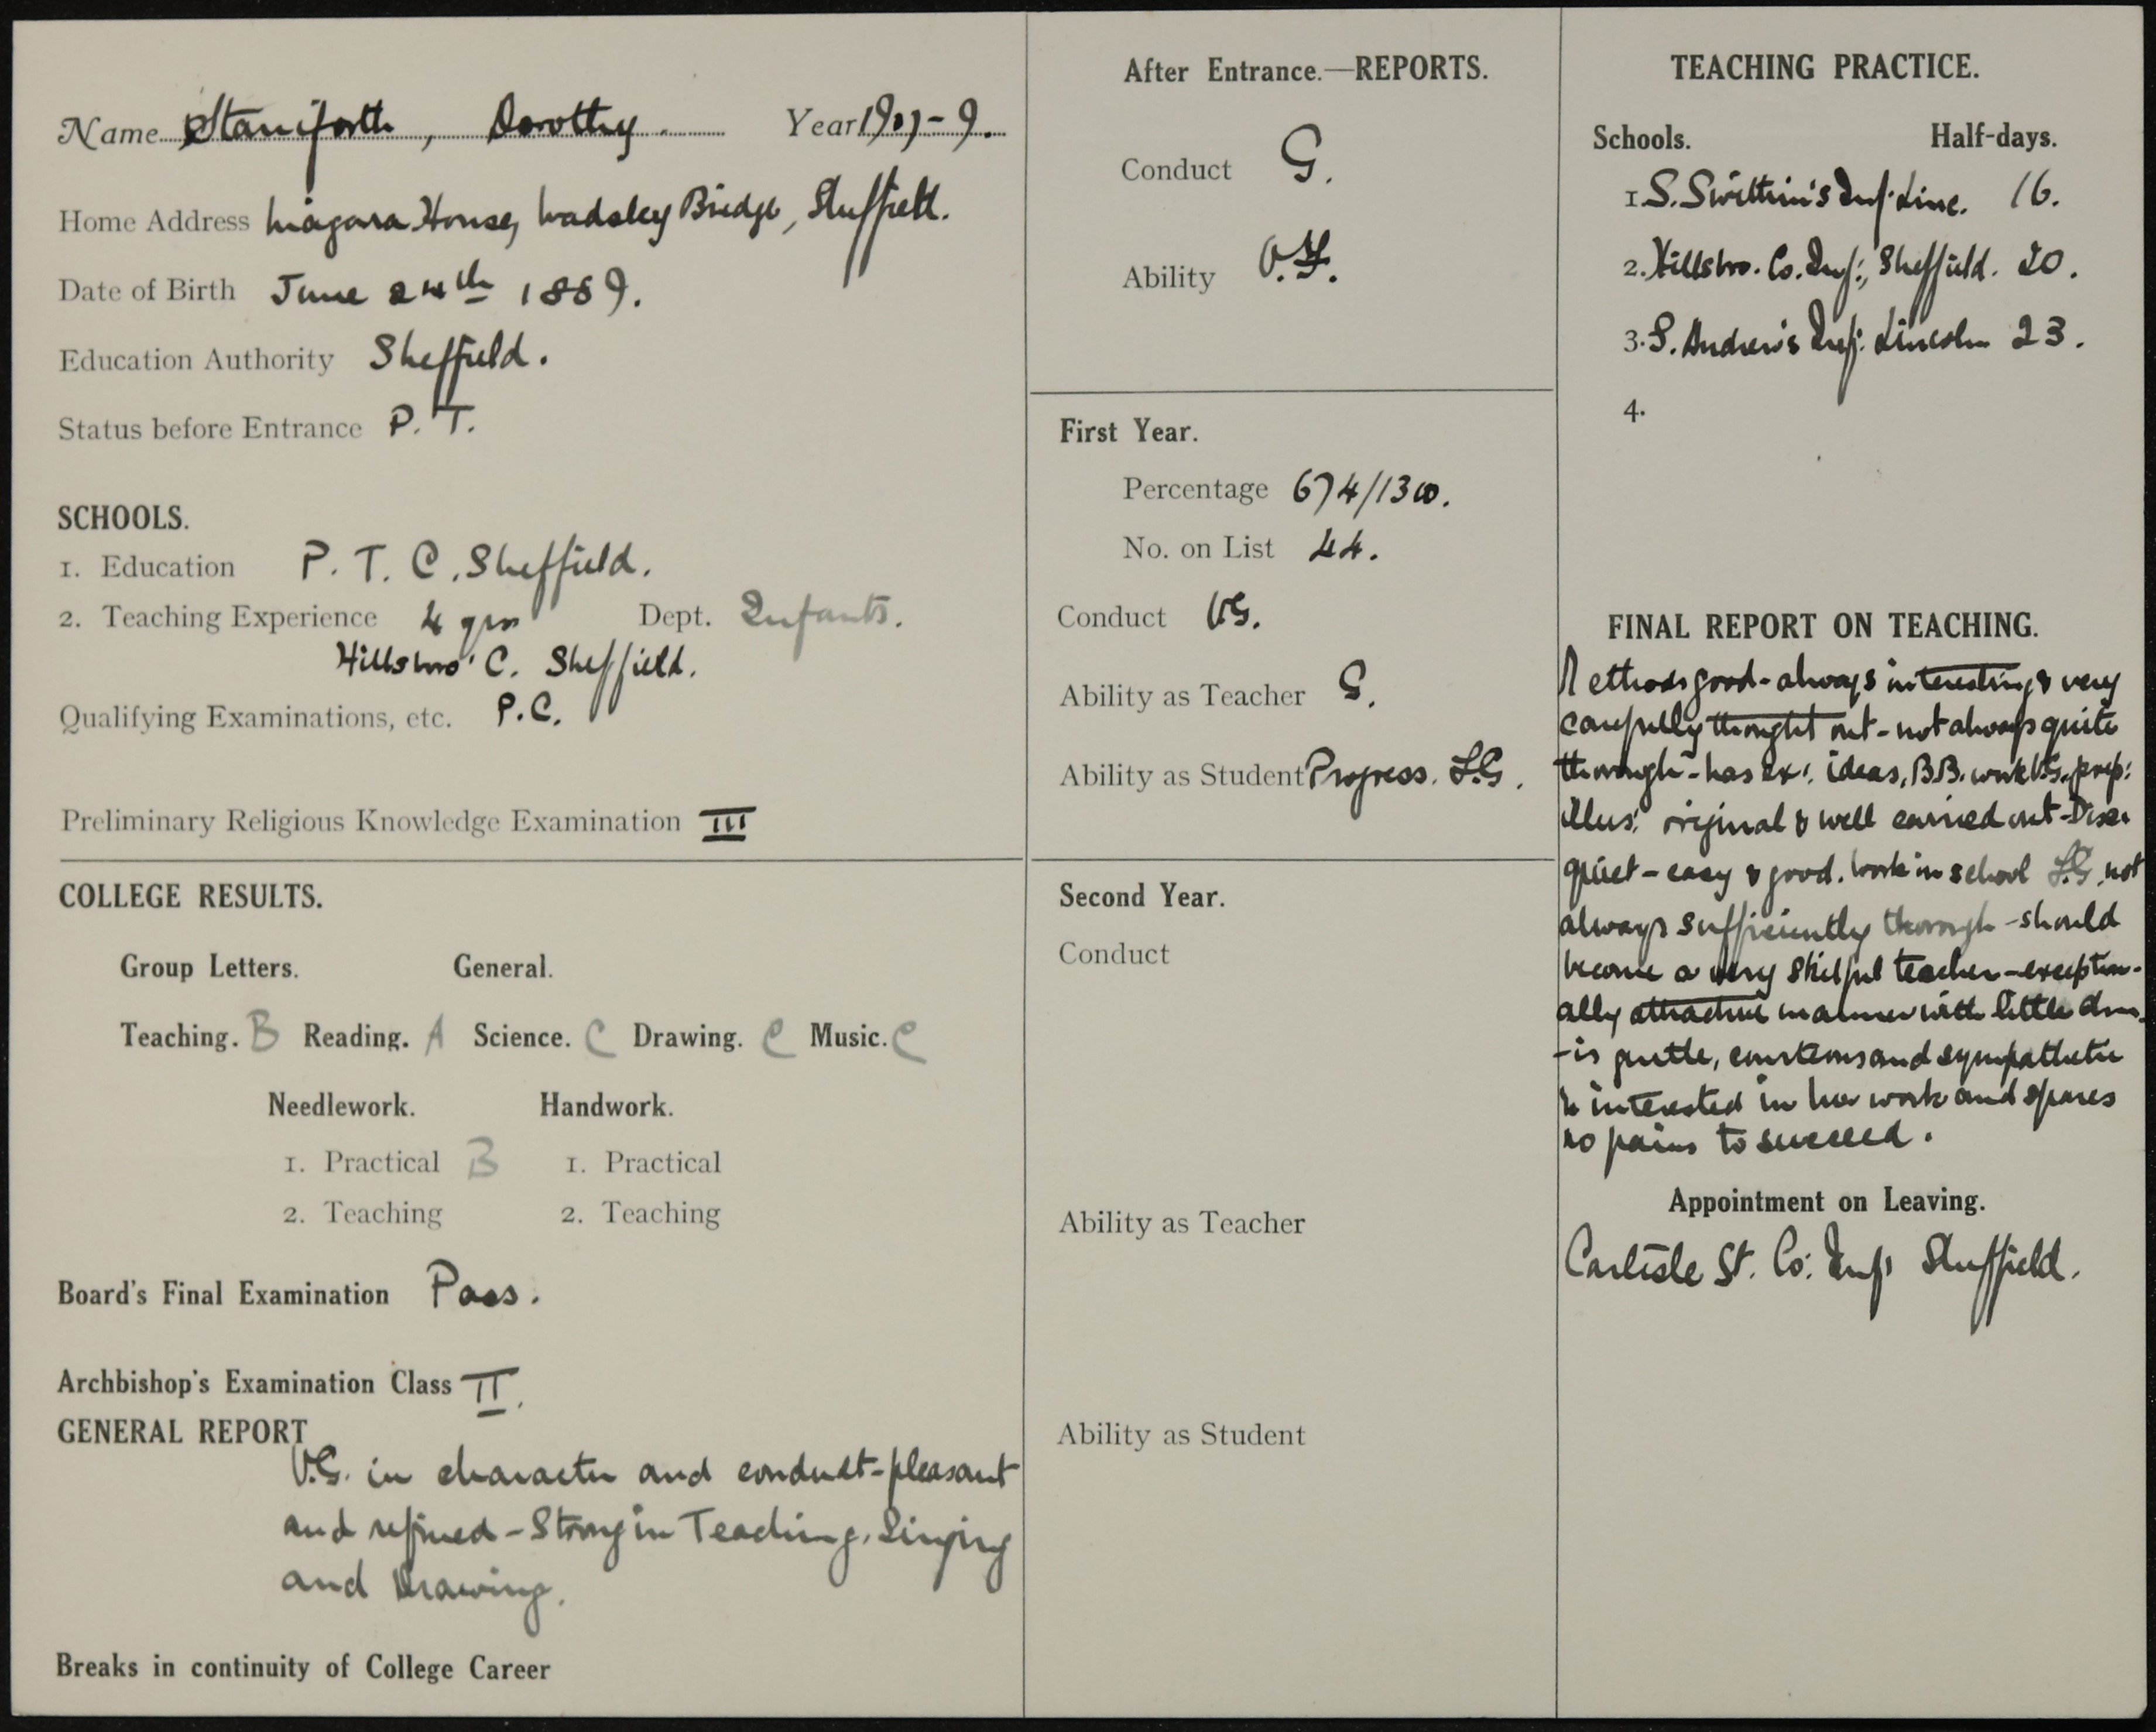 Name Staniforth, Dorothy. Year 1907-9.
Home Address Niagara House, Wadsley Bridge, Sheffield.
Date of Birth June 24th 1889.
Education Authority Sheffield.
Status before Entrance P. T.
SCHOOLS.
1. Education P. T. C. Sheffield.
2. Teaching Experience 4 yrs Dept. Infants.
Hillsbro' C. Sheffield.
Qualifying Examinations, etc. P.C.
Preliminary Religious Knowledge Examination III
COLLEGE RESULTS.
Group Letters. General.
Teaching. B Reading. A Science. C Drawing. C Music. C
Needlework. Handwork.
1. Practical B 1. Practical
2. Teaching 2. Teaching
Board's Final Examination Pass.
Archbishop's Examination Class II.
GENERAL REPORT
V.G. in character and conduct-pleasant
and refined - Strong in Teaching, Singing
and Drawing.
Breaks in continuity of College Career
After Entrance.—REPORTS.
Conduct G.
Ability V.F.
First Year.
Percentage 674/1300.
No. on List 44.
Conduct VG.
Ability as Teacher G.
Ability as Student Progress. F.G.
Second Year.
Conduct
Ability as Teacher
Ability as Student
TEACHING PRACTICE.
Schools. Half-days.
1. S. Swithin's Inf: Linc. 16.
2. Hillsbro. Co. Inf:, Sheffield. 20.
3. S. Andrew's Inf: Lincoln 23.
4.
FINAL REPORT ON TEACHING.
Methods good - always interesting & very
carefully thought out - not always quite
thorough - has ex: ideas, B.B. work V.G. prep:
illus: original & well carried out - Disc:
quiet - easy & good. Work in school F.G. not
always sufficiently thorough - should
become a very skilful teacher - exception-
ally attractive manner with little
- is gentle, courteous and sympathetic
is interested in her work and spares
no pains to succeed.
Appointment on Leaving.
Carlisle St. Co: Inf: Sheffield.